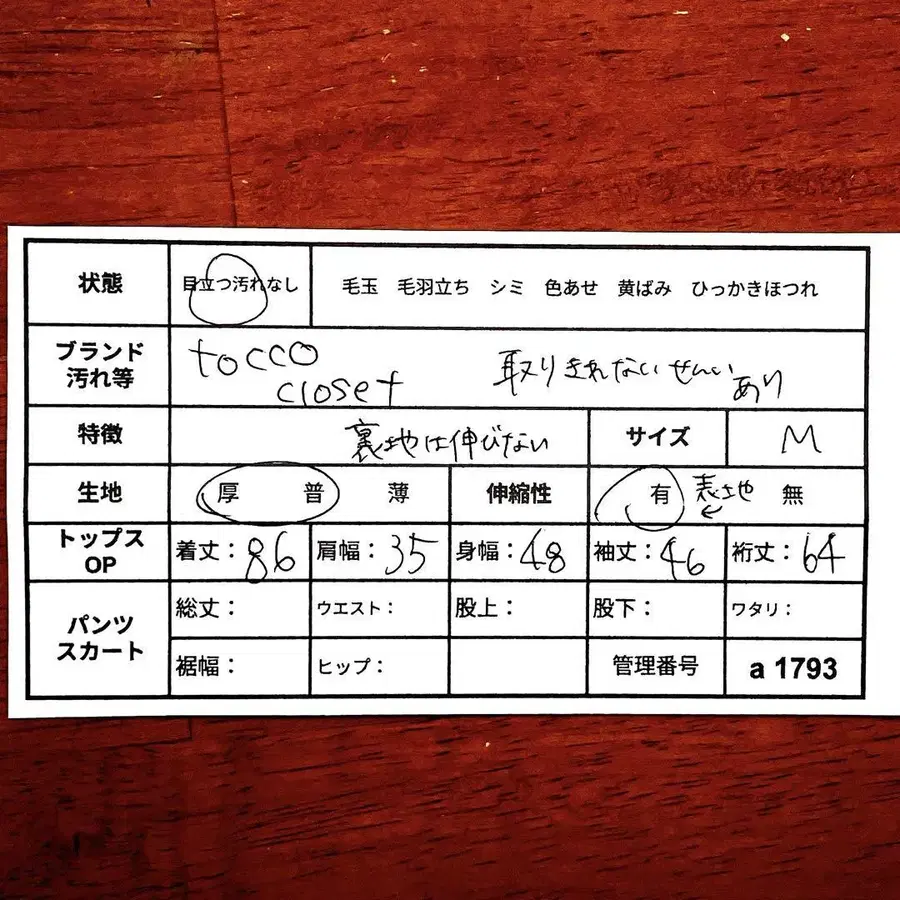 状態 目立つ汚れなし 毛玉 毛羽立ち シミ 色あせ 黄ばみ ひっかきほつれ
ブランド
汚れ等
tocco
closet
取りきれないせんい
あり
特徴 裏地は伸びない サイズ M
生地 厚 普 薄 伸縮性 有 表地 無
トップス
OP
着丈：86 肩幅：35 身幅：48 袖丈：46 裄丈：64
パンツ
スカート
総丈： ウエスト： 股上： 股下： ワタリ：
裾幅： ヒップ： 管理番号 a 1793